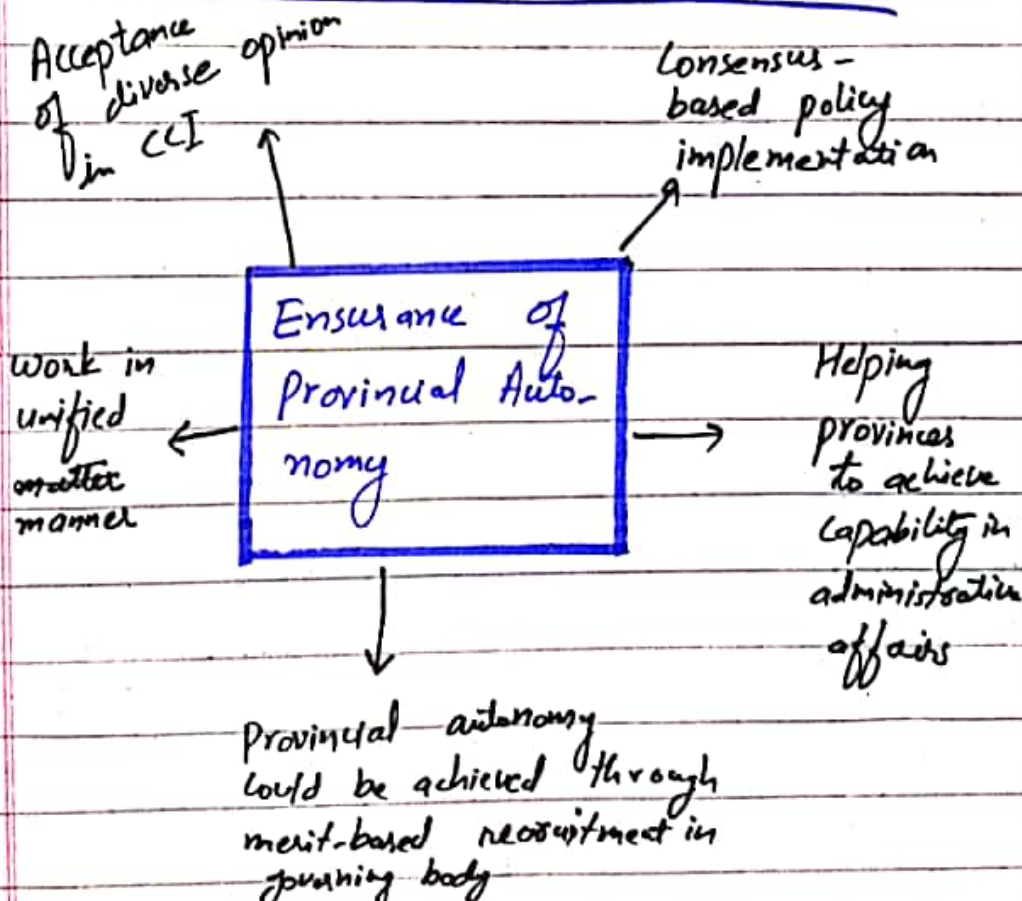 Acceptance
of diverse opinion
in CCI
Consensus-
based policy
implementation
Ensurance of
Provincial Auto-
nomy
work in
unified
matter
manner
Helping
provinces
to achieve
capability in
administrative
affairs
Provincial autonomy
could be achieved through
merit-based recruitment in
governing body